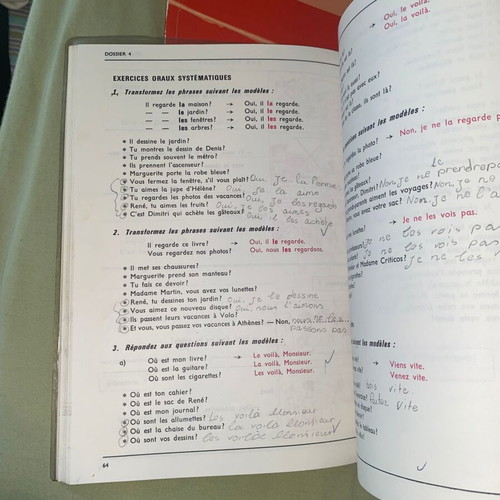 DOSSIER 4
EXERCICES ORAUX SYSTÉMATIQUES
1. Transformez les phrases suivant les modèles :
Il regarde la maison? → Oui, il la regarde.
— — le jardin? → Oui, il le regarde.
— — les fenêtres? → Oui, il les regarde.
— — les arbres? → Oui, il les regarde.
• Il dessine le jardin?
• Tu montres le dessin de Denis?
• Tu prends souvent le métro?
• Ils prennent l'ascenseur?
• Marguerite porte la robe bleue?
• Vous fermez la fenêtre, s'il vous plaît? Oui je la ferme
• Tu aimes la jupe d'Hélène? Oui, je la aime
• Tu regardes les photos des vacances? Oui, je les regarde
• René, tu aimes les fruits? Oui, je les aimes
• C'est Dimitri qui achète les gâteaux? Oui, il les achète
2. Transformez les phrases suivant les modèles :
Il regarde ce livre? → Oui, il le regarde.
Vous regardez nos photos? Oui, nous les regardons.
• Il met ses chaussures?
• Marguerite prend son manteau?
• Tu fais ce devoir?
• Madame Martin, vous avez vos lunettes?
• René, tu dessines ton jardin? Oui, je le dessine
• Vous aimez ce nouveau disque? Oui, nous l'aimons
• Ils passent leurs vacances à Volo?
• Et vous, vous passez vos vacances à Athènes? — Non, nous NE les
passons pas
3. Répondez aux questions suivant les modèles :
a) Où est mon livre? → Le voilà, Monsieur.
Où est la guitare? La voilà, Monsieur.
Où sont les cigarettes? Les voilà, Monsieur.
• Où est ton cahier?
• Où est le sac de René?
• Où est mon journal?
• Où sont les allumettes? Les voilà Monsieur
• Où est la chaise du bureau? La voilà Monsieur
• Où sont vos dessins? Les voilà Monsieur
64
Oui, le voilà.
Oui, la voilà.
pas avec eux?
, ils sont là?
suivant les modèles :
la photo? → Non, je ne la regarde p
robe bleue?
le
Dimitri? Non, je ne prendrop
parents aiment les voyages? Non, je ne
vous avez votre sac? Non, je ne l'a
→ Je ne les vois pas.
lunettes? je ne les vois pas
je ne les vois pas
et Madame Criticos? je ne les v
les modèles :
→ Viens vite.
Venez vite.
bois vite.
vite
tableau?